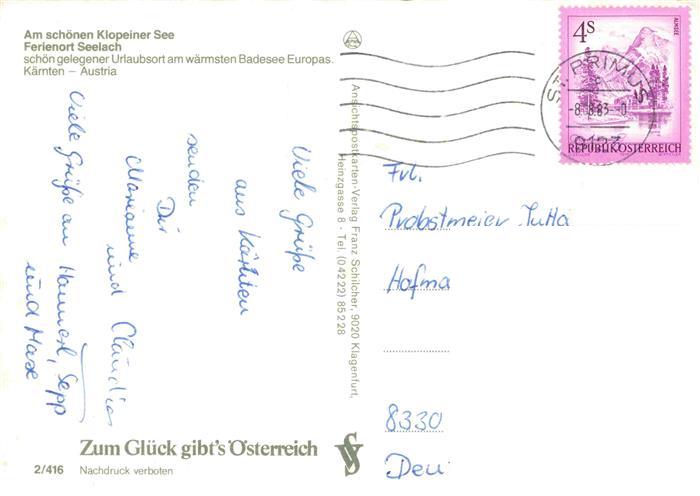 Am schönen Klopeiner See
Ferienort Seelach
schön gelegener Urlaubsort am wärmsten Badesee Europas.
Kärnten – Austria
Viele Grüße
aus Kärnten
senden
Dir
Marianne
und Claudia
Viele Grüße an Hannerl, Sepp
und Maxe
Zum Glück gibt's Österreich
2/416 Nachdruck verboten
Ansichtspostkarten-Verlag Franz Schilcher, 9020 Klagenfurt,
Heinzgasse 8 · Tel. (04222) 85228
4S
ALMSEE
REPUBLIK ÖSTERREICH
ST. PRIMUS
-8.8.83-0
9123
Frl.
Probstmeier Jutta
Hofma
8330